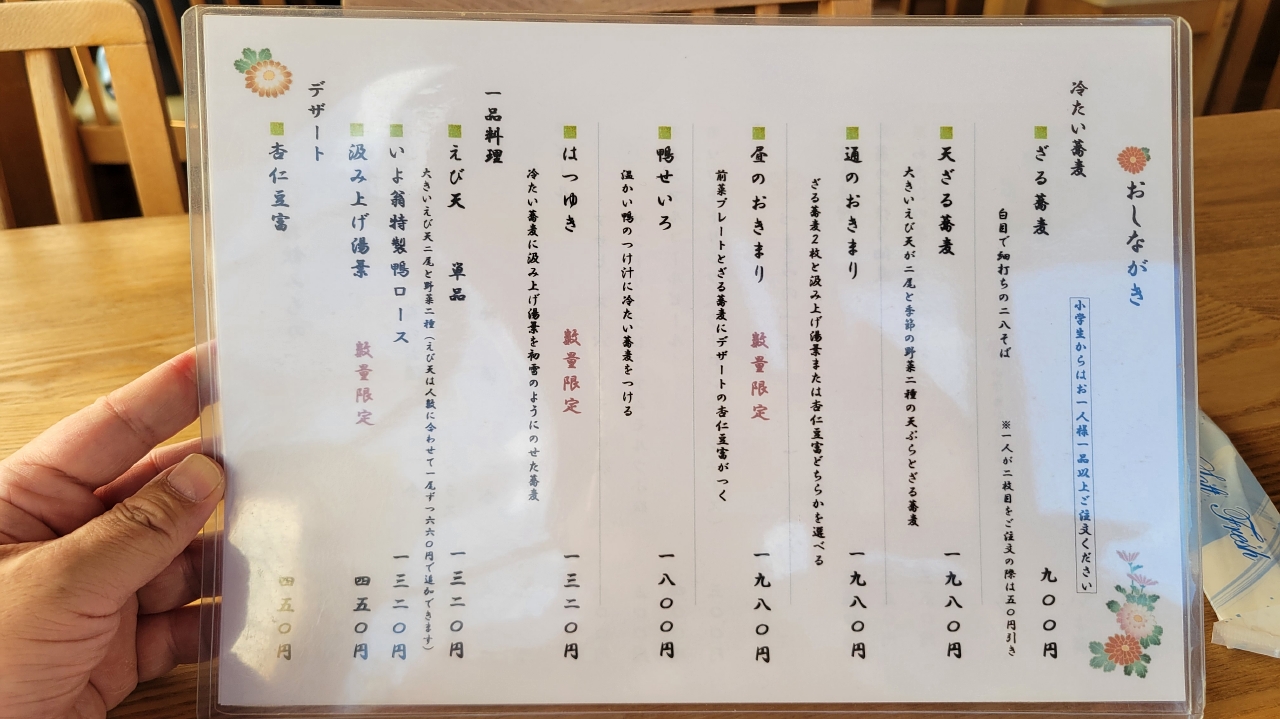 おしながき
小学生からはお一人様一品以上ご注文ください
冷たい蕎麦
ざる蕎麦 九〇〇円
白目で細打ちの二八そば ※一人が二枚目をご注文の際は五〇円引き
天ざる蕎麦 一九八〇円
大きいえび天が二尾と季節の野菜二種の天ぷらとざる蕎麦
通のおきまり 一九八〇円
ざる蕎麦2枚と汲み上げ湯葉または杏仁豆富どちらかを選べる
昼のおきまり 数量限定 一九八〇円
前菜プレートとざる蕎麦にデザートの杏仁豆富がつく
鴨せいろ 一八〇〇円
温かい鴨のつけ汁に冷たい蕎麦をつける
はつゆき 数量限定 一三二〇円
冷たい蕎麦に汲み上げ湯葉を初雪のようにのせた蕎麦
一品料理
えび天 単品 一三二〇円
大きいえび天二尾と野菜二種(えび天は人数に合わせて一尾ずつ六六〇円で追加できます)
いよ翁特製鴨ロース 一三二〇円
汲み上げ湯葉 数量限定 四五〇円
デザート
杏仁豆富 四五〇円
Fresh